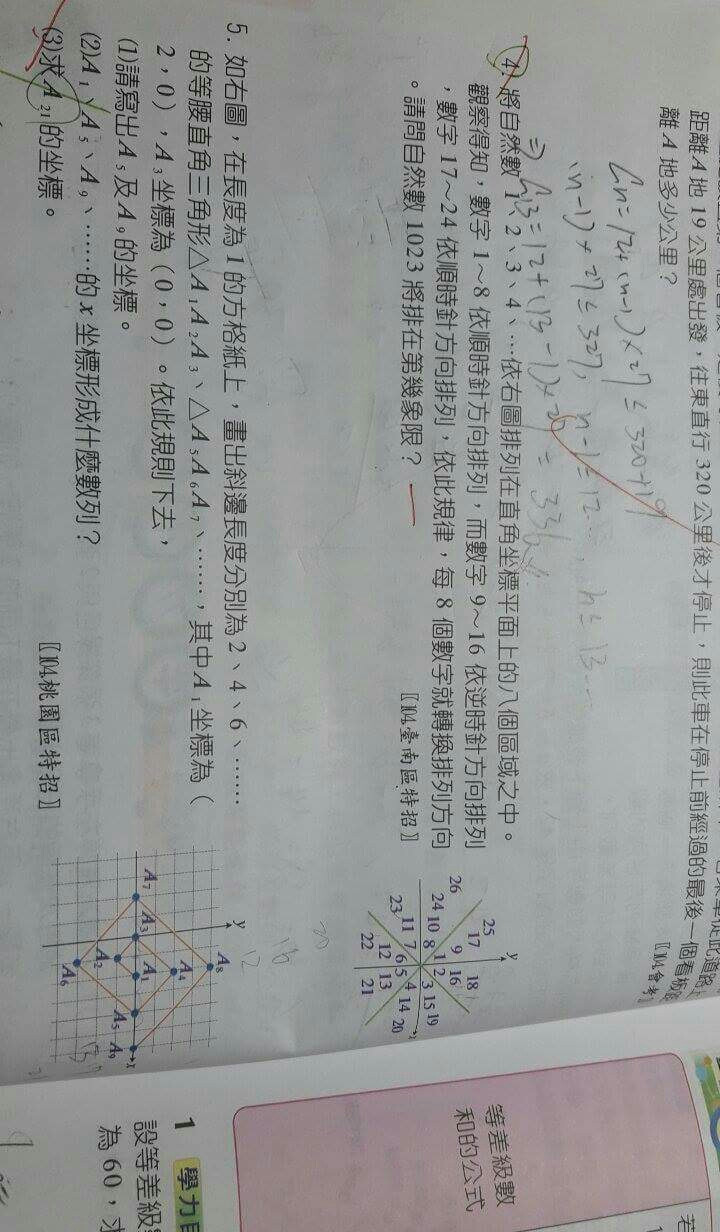 距離A地19公里處出發，往東直行320公里後才停止，則此車在停止前經過的最後一個看板距
離A地多少公里？
〖104.會考〗
Gn=12+(n-1)×27≤320+19
(n-1)×27≤327, n-1=12…, n=13…
⇒G13=12+(13-1)×27=336
4. 將自然數1、2、3、4、…依右圖排列在直角坐標平面上的八個區域之中。
觀察得知，數字1～8依順時針方向排列，而數字9～16依逆時針方向排列
，數字17～24依順時針方向排列，依此規律，每8個數字就轉換排列方向
。請問自然數1023將排在第幾象限？
〖104.臺南區特招〗
y
25
26
17
18
24
10
9
16
19
8
1
2
15
23
11
7
3
6
5
4
14
20
22
12
13
21
5. 如右圖，在長度為1的方格紙上，畫出斜邊長度分別為2、4、6、……
的等腰直角三角形△A₁A₂A₃、△A₅A₆A₇、……，其中A₁坐標為（
2，0），A₃坐標為（0，0）。依此規則下去，
(1)請寫出A₅及A₉的坐標。
(2)A₁、A₅、A₉、……的x坐標形成什麼數列？
(3)求A₂₁的坐標。
〖104.桃園區特招〗
y
A₈
A₄
A₇
A₃
A₁
A₅
A₉
x
A₂
A₆
20
16
12
等差級數
和的公式
1
學力
設等差級
為60，求
若